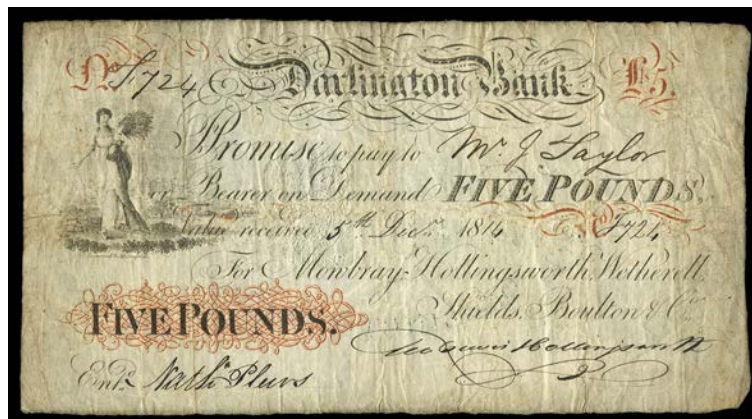 No F724 Darlington Bank £5.
Promise to pay to Mr. J Taylor
or Bearer on Demand FIVE POUNDS.
Value received 5th Decr. 1814 F724
For Mowbray, Hollingsworth, Wetherell,
Shields, Boulton & Co.
FIVE POUNDS.
Hollingsworth
Entd. Nathl Plews